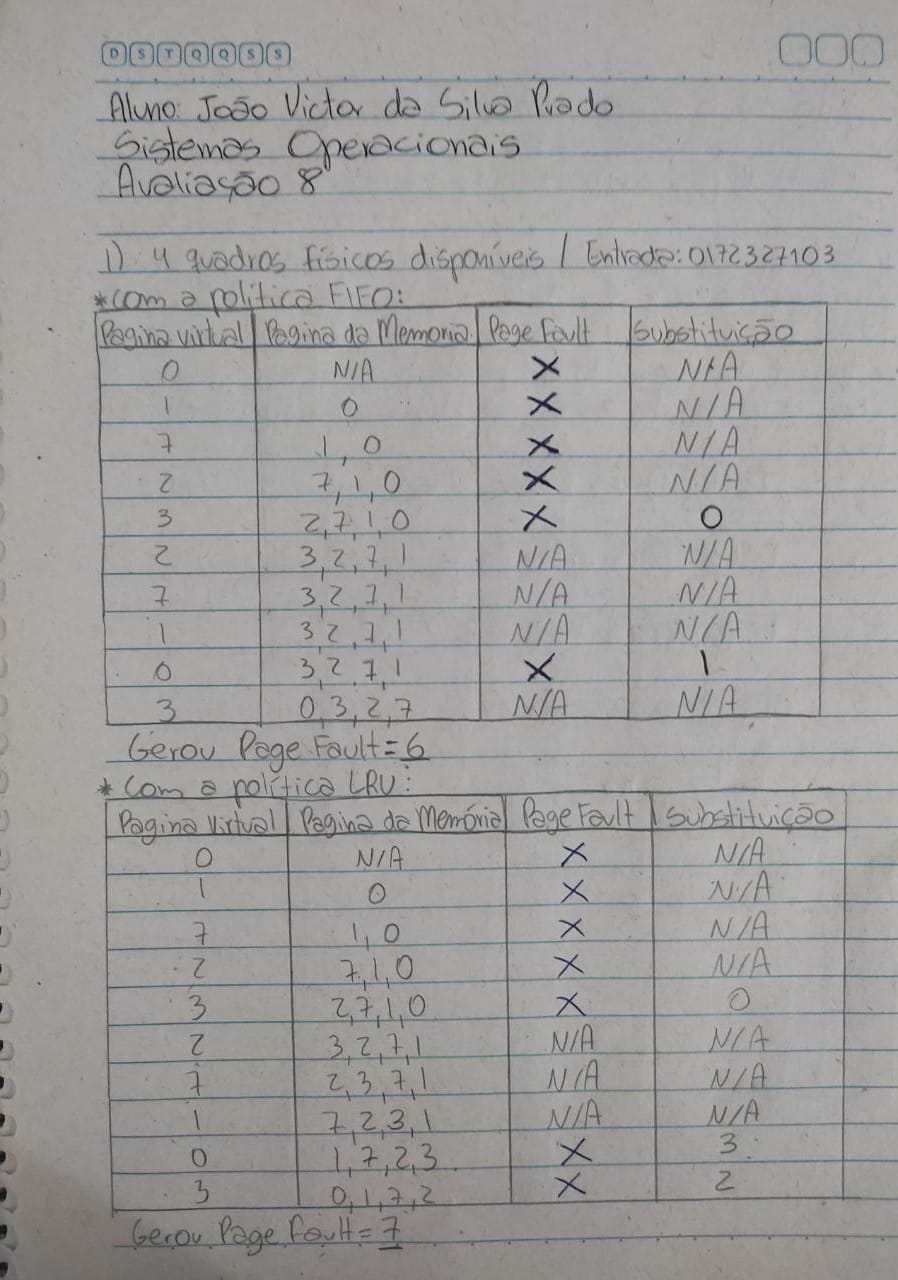 D S T Q Q S S
Aluno: João Victor da Silva Prado
Sistemas Operacionais
Avaliação 8
1) 4 quadros físicos disponíveis / Entrada: 0172327103
*Com a política FIFO:
Pagina virtual | Pagina da Memoria | Page Fault | Substituição
0 | N/A | X | N/A
1 | 0 | X | N/A
7 | 1, 0 | X | N/A
2 | 7, 1, 0 | X | N/A
3 | 2, 7, 1, 0 | X | 0
2 | 3, 2, 7, 1 | N/A | N/A
7 | 3, 2, 7, 1 | N/A | N/A
1 | 3 2, 7, 1 | N/A | N/A
0 | 3, 2, 7, 1 | X | 1
3 | 0, 3, 2, 7 | N/A | N/A
Gerou Page Fault = 6
* Com a política LRU:
Pagina Virtual | Pagina da Memória | Page Fault | Substituição
0 | N/A | X | N/A
1 | 0 | X | N/A
7 | 1, 0 | X | N/A
2 | 7, 1, 0 | X | N/A
3 | 2, 7, 1, 0 | X | 0
2 | 3, 2, 7, 1 | N/A | N/A
7 | 2, 3, 7, 1 | N/A | N/A
1 | 7, 2, 3, 1 | N/A | N/A
0 | 1, 7, 2, 3 | X | 3
3 | 0, 1, 7, 2 | X | 2
Gerou Page Fault = 7